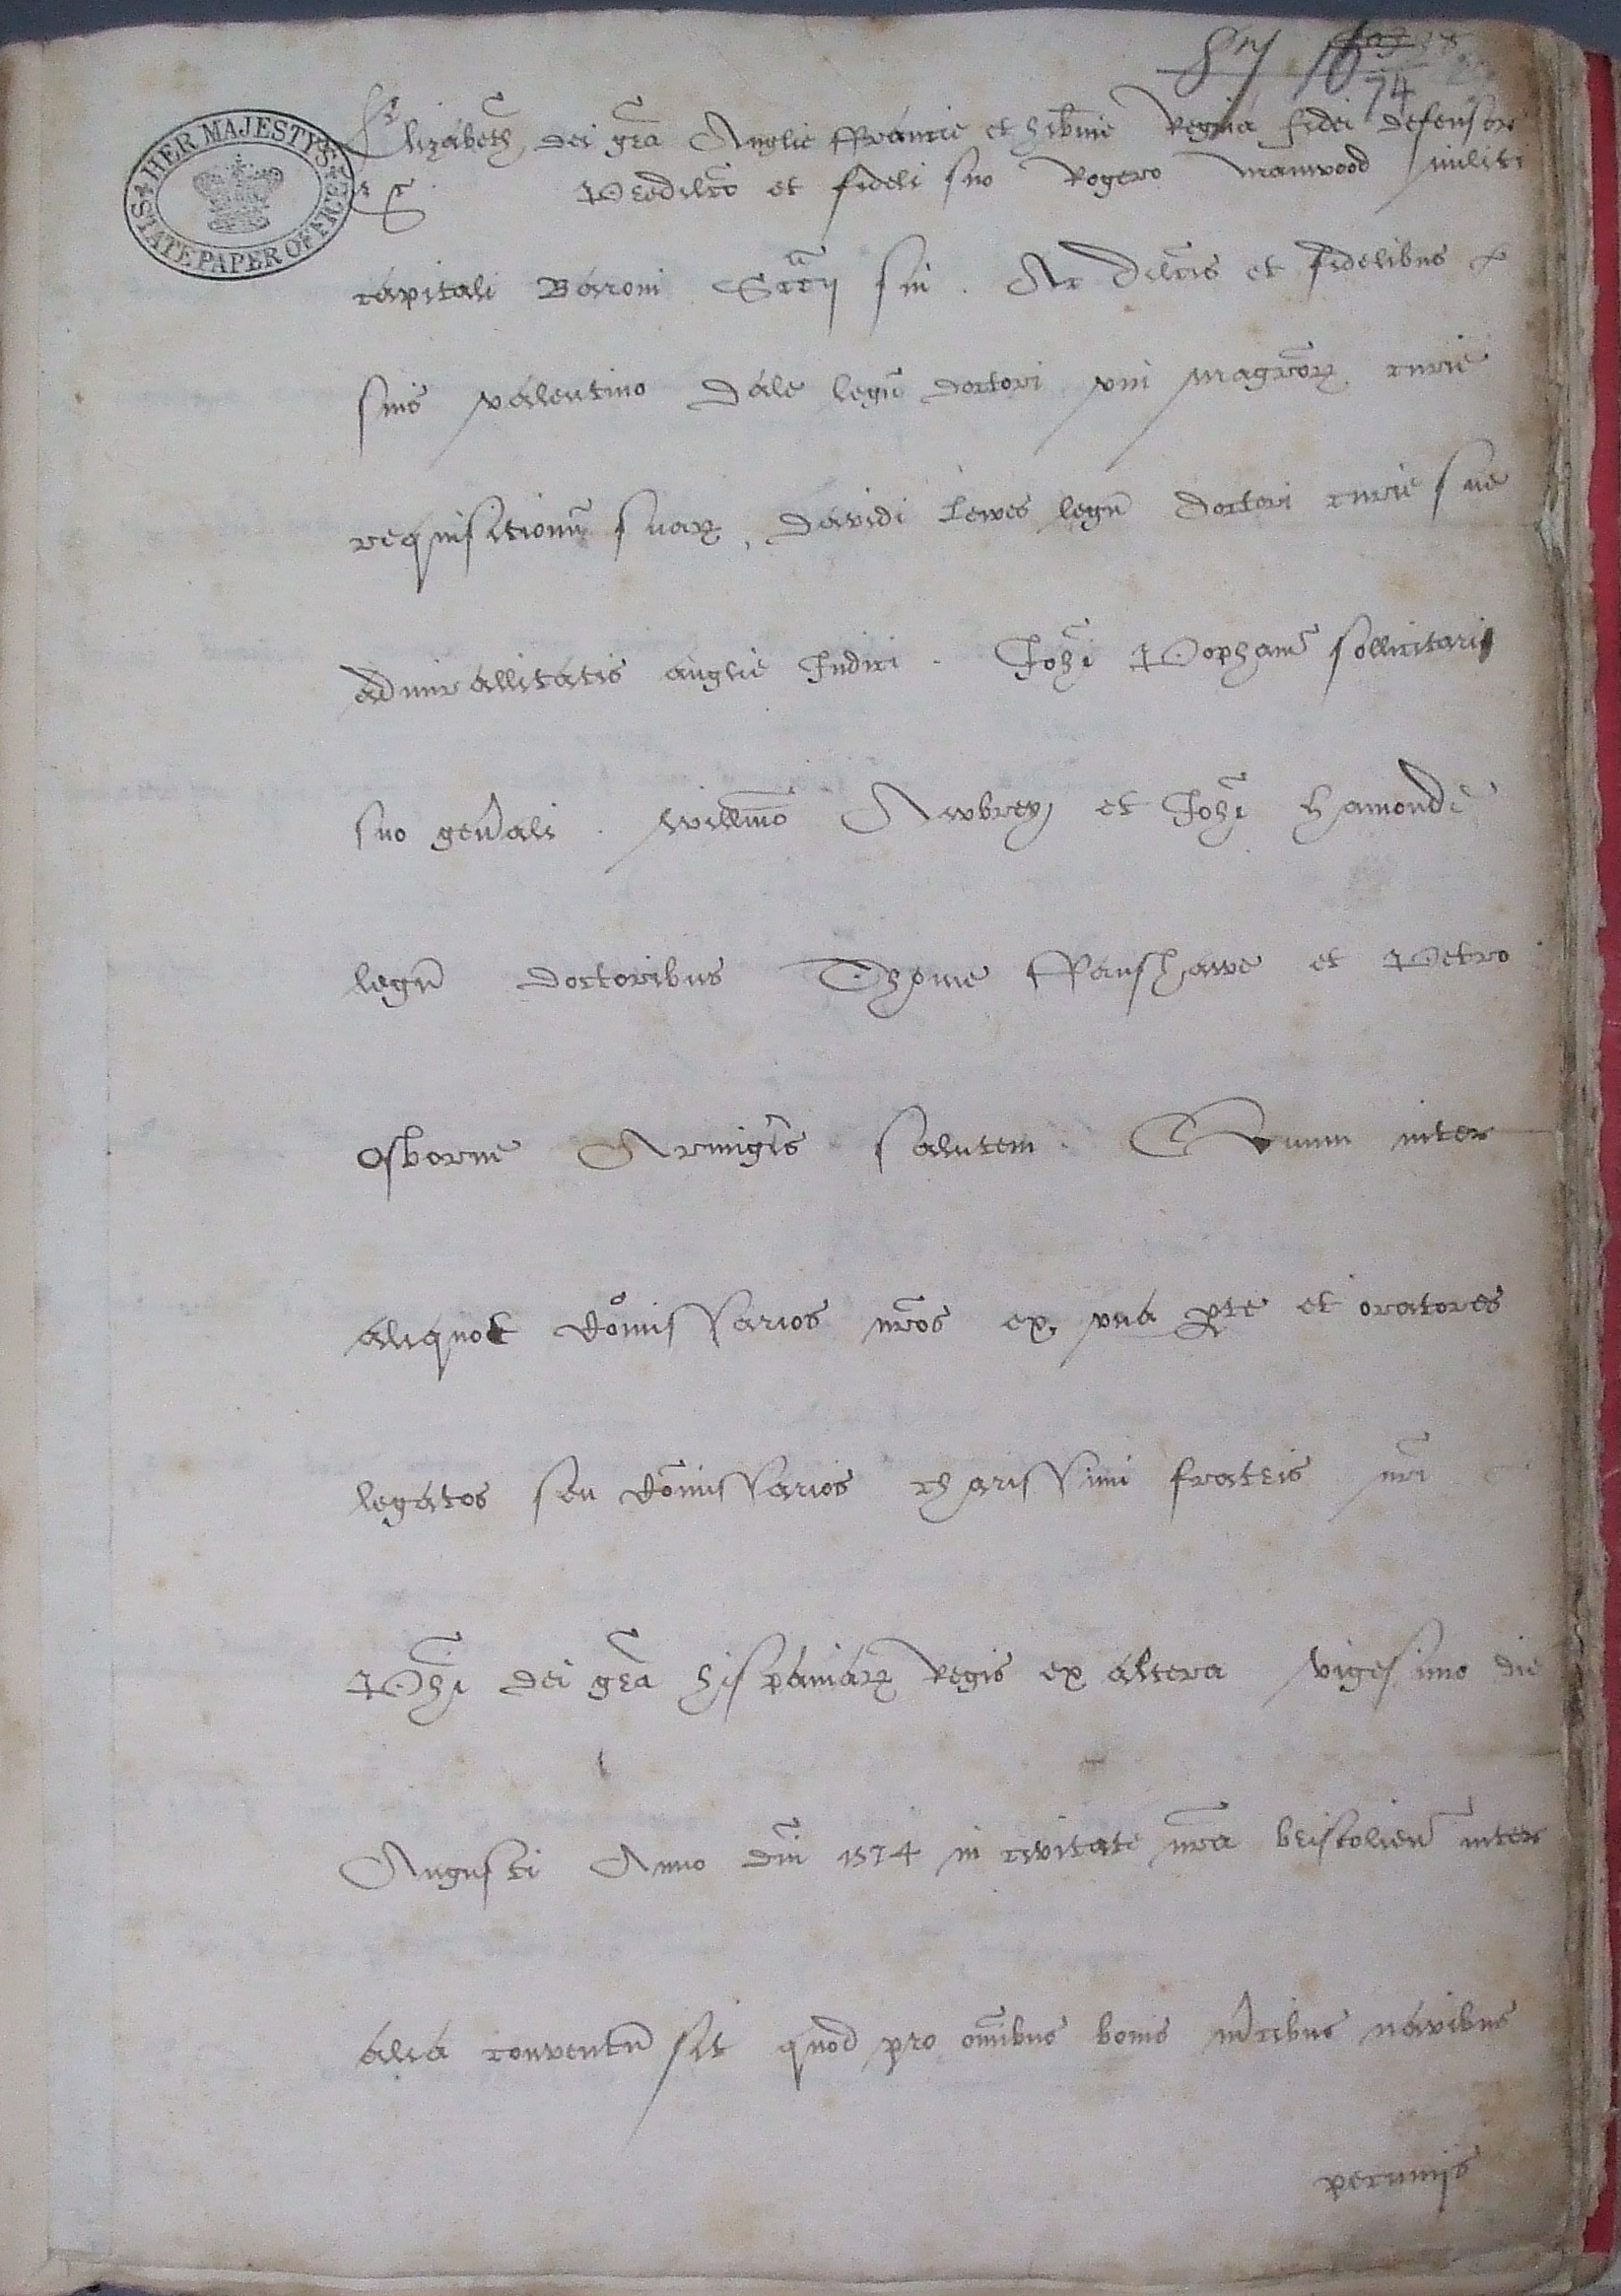 87 16
74
HER MAJESTY'S STATE PAPER OFFICE
Elizabeth dei gr̃a Anglie ffrancie et hib̃nie Regina fidei defensor
&c Predilc̃o et fideli suo Rogero manwood militi
capitali Baroni Sc̃c̃ij sui . Ac dilc̃is et fidelibus
suis valentino Dale legũ doctori vni magr̃oꝝ curie
requisitionũ suaꝝ , Davidi Lewes legũ doctori curie sue
admirallitatis anglie Iudici . Joh̃i Popham̃ sollicitario
suo geñali . will̃mo Awbrey et Joh̃i hamonde
legũ doctoribus Thome ffanshawe et Petro
Osborne Armig̃is salutem . Cum inter
aliquot Com̃issarios nr̃os ex vna ꝑte et oratores
legatos seu Com̃issarios charissimi fratris nr̃i
Ph̃i dei gr̃a hispaniaꝝ Regis ex altera vigesimo die
Augusti Anno Dñi 1574 in civitate nr̃a bristolien̄ inter
alia conventũ sit quod pro om̃ibus bonis m̃cibus navibus
pecuniis